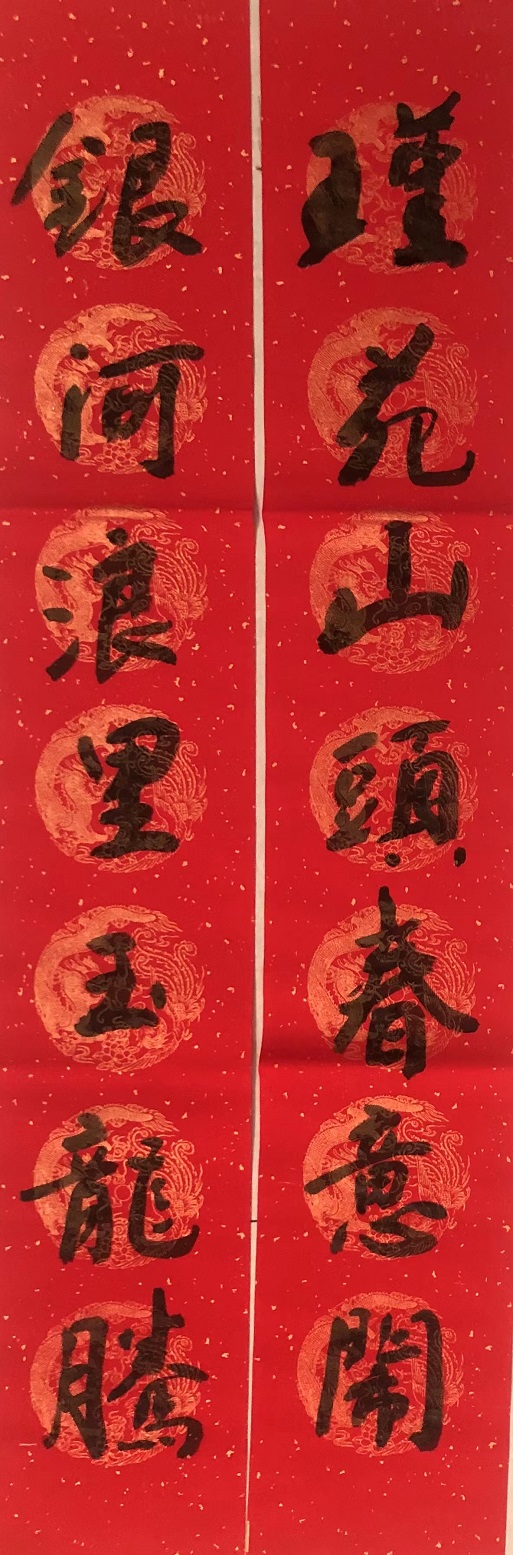 瑾苑山頭春意鬧
銀河浪里玉龍騰